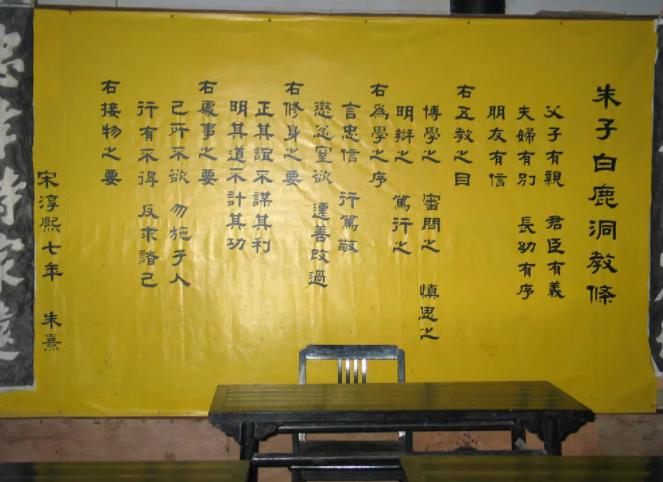 朱子白鹿洞教條
父子有親 君臣有義
夫婦有別 長幼有序
朋友有信
右五教之目
博學之 審問之 慎思之
明辯之 篤行之
右為學之序
言忠信 行篤敬
懲忿窒欲 遷善改過
右修身之要
正其誼不謀其利
明其道不計其功
右處事之要
己所不欲 勿施于人
行有不得 反求諸己
右接物之要
宋淳熙七年 朱熹